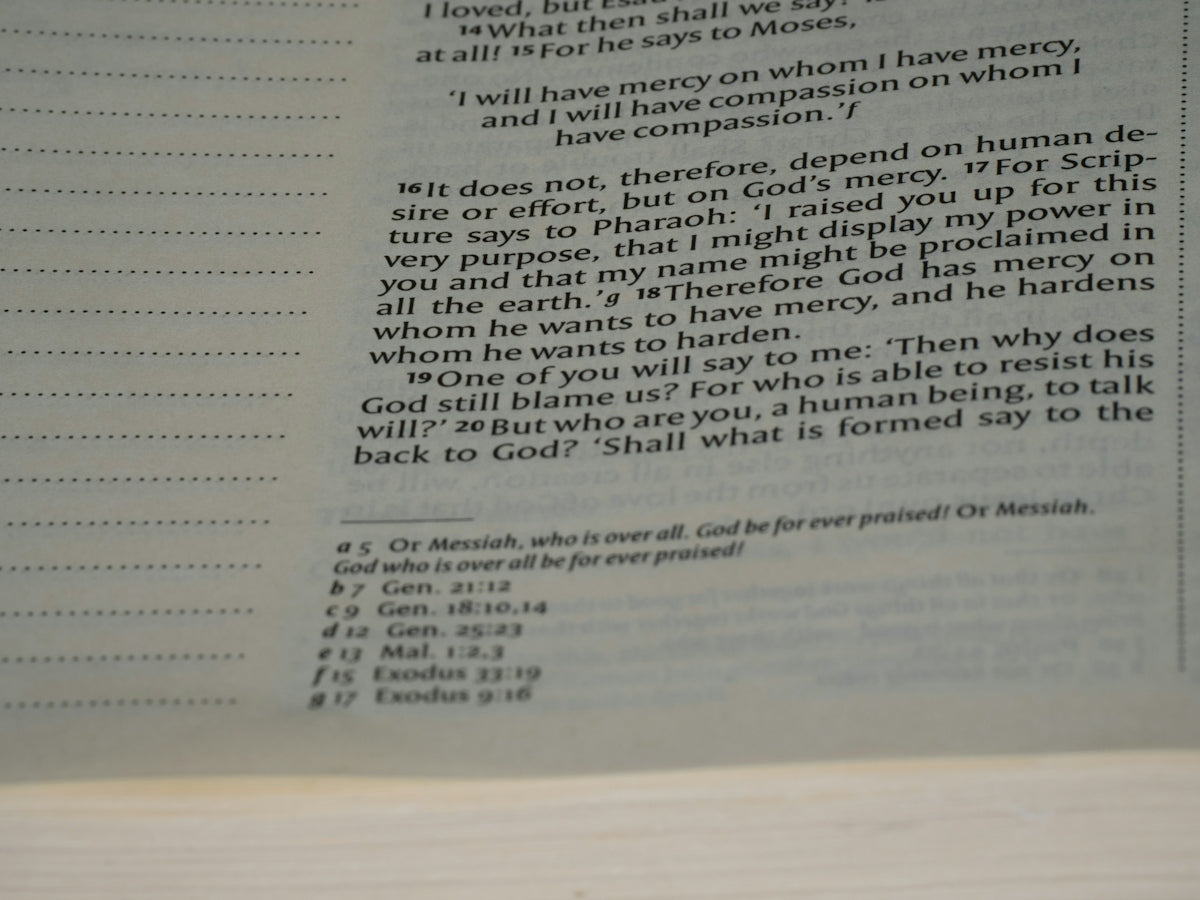 I loved, but
14 What then shall we say?
at all! 15 For he says to Moses,
‘I will have mercy on whom I have mercy,
and I will have compassion on whom I
have compassion.’f
16 It does not, therefore, depend on human de-
sire or effort, but on God’s mercy. 17 For Scrip-
ture says to Pharaoh: ‘I raised you up for this
very purpose, that I might display my power in
you and that my name might be proclaimed in
all the earth.’g 18 Therefore God has mercy on
whom he wants to have mercy, and he hardens
whom he wants to harden.
19 One of you will say to me: ‘Then why does
God still blame us? For who is able to resist his
will?’ 20 But who are you, a human being, to talk
back to God? ‘Shall what is formed say to the
a 5 Or Messiah, who is over all. God be for ever praised! Or Messiah.
God who is over all be for ever praised!
b 7 Gen. 21:12
c 9 Gen. 18:10,14
d 12 Gen. 25:23
e 13 Mal. 1:2,3
f 15 Exodus 33:19
g 17 Exodus 9:16